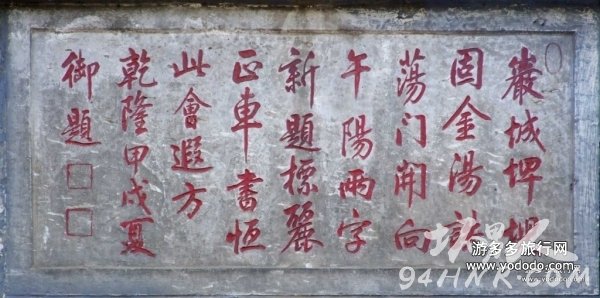 巖城埤堄
固金湯詄
蕩门開向
午陽兩字
新題標麗
正車書恒
此會遐方
乾隆甲戌夏
御題
游多多旅行网
www.yododo.com
94HNK.COM